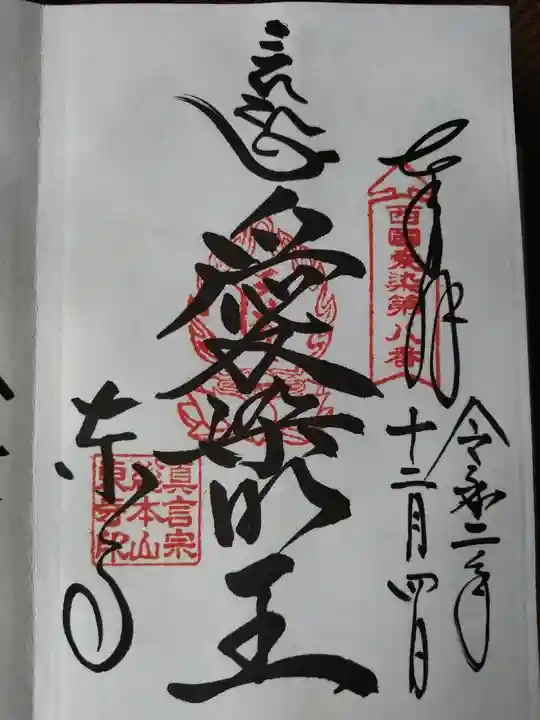 奉拝
西國愛染第八番
令和二年
十二月四日
愛染明王
東寺
真言宗
総本山
東寺印